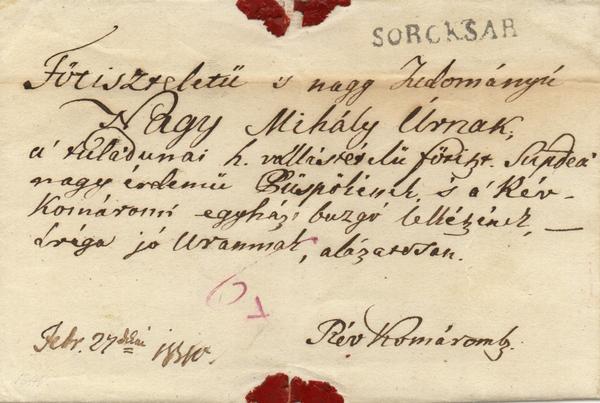 SORCKSAR
Főtiszteletű s nagy Tudományú
Nagy Mihály Úrnak,
a túladunai h. vallástételű főtiszt. Supdeá
nagy érdemű Püspökének, s a Rév-
komáromi egyház buzgó lelkészének,
drága jó Uramnak, alázatossan.
Febr. 27
Rév Komáromb.